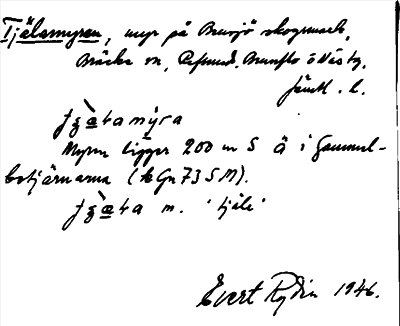 Tjälamyren, myr på Brusjö skogsmark,
Bräcke sn, Refsund, Brunflo o Näs tg,
Jämtl. l.
Myren ligger 200 m S ä i Gammel-
botjärnarna (kGn 73 SM).
m. 'tjäle'
Evert Rydin 1946.